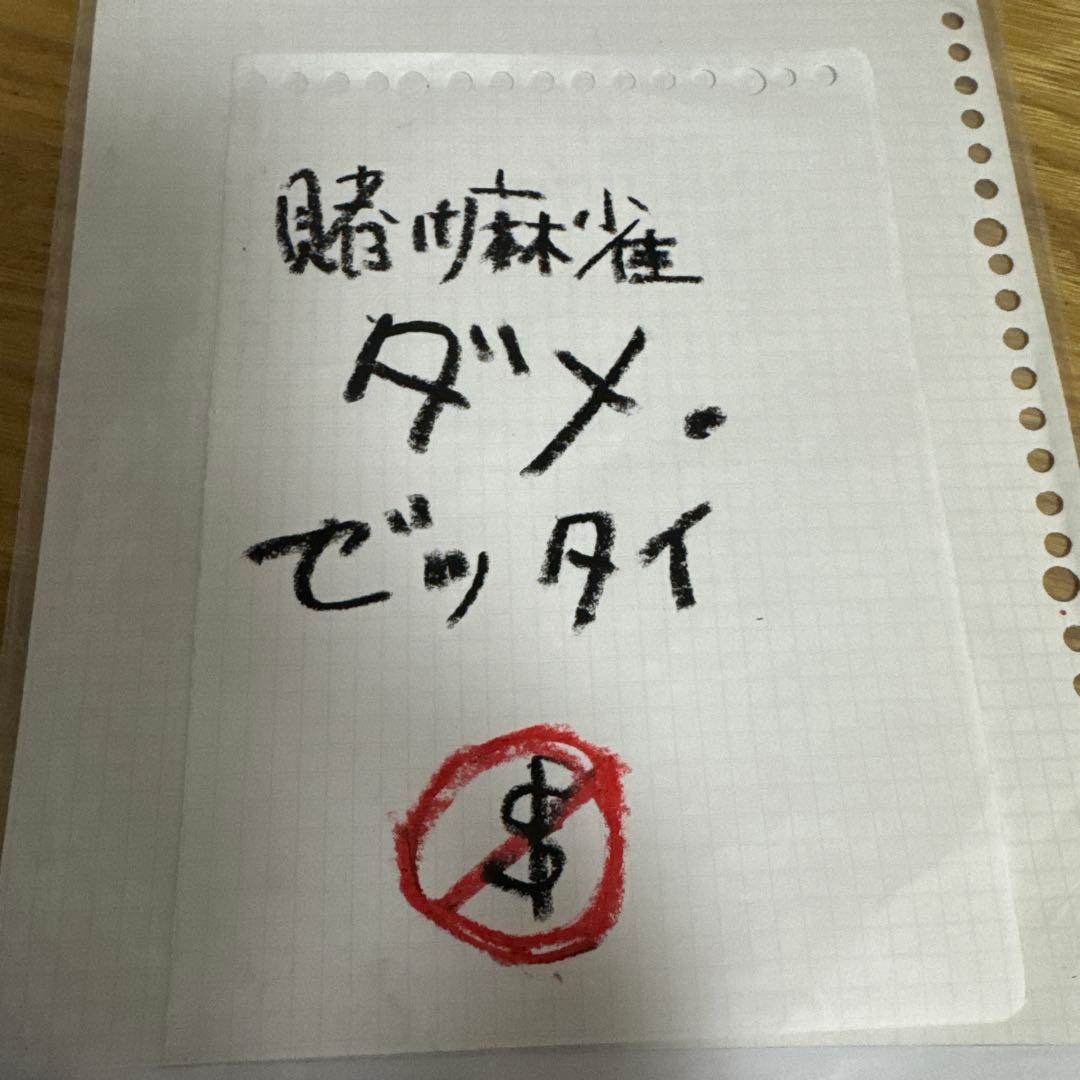 賭け麻雀
ダメ.
ゼッタイ
$